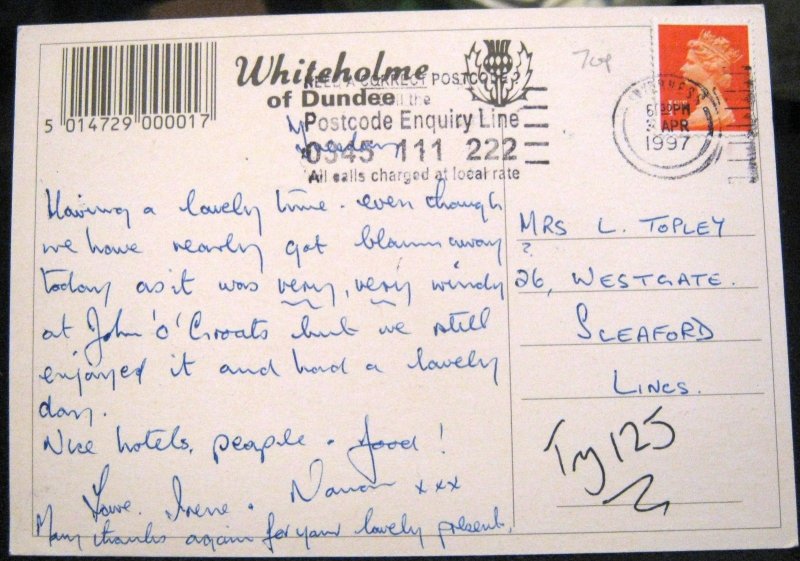 Whiteholme
of Dundee
5 014729 000017
NEED A CORRECT POSTCODE?
the
Postcode Enquiry Line
0345 111 222
All calls charged at local rate
6 PM
APR
1997
70p
Having a lovely time. even though
we have nearly got blown away
today as it was very, very windy
at John 'O' Groats but we still
enjoyed it and had a lovely
day.
Nice hotels, people. food!
Love. Irene. xxx
Many thanks again for your lovely present.
MRS L. TOPLEY
?
26, WESTGATE.
SLEAFORD
LINCS.
Try 125